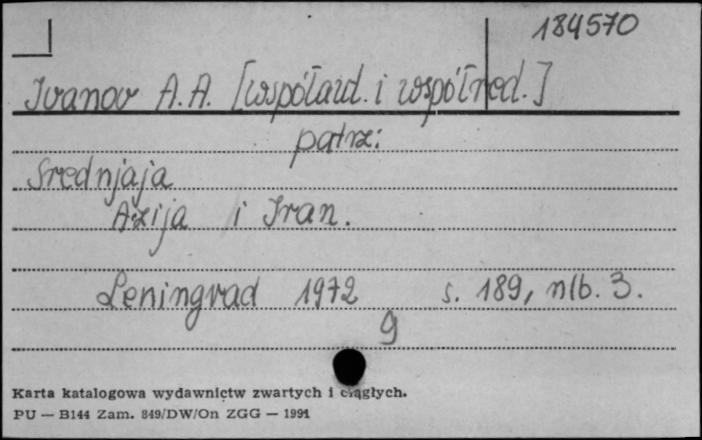 184570
Ivanov A.A. [współaut. i współred.]
patrz:
Srednjaja
Azija i Iran.
Leningrad 1972 s. 189, nlb. 3.
9
Karta katalogowa wydawnictw zwartych i ciągłych.
PU — B144 Zam. 849/DW/On ZGG — 1991